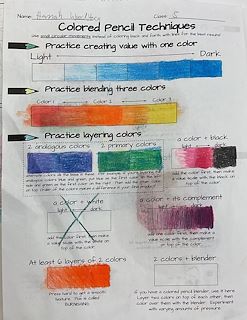 Name: Hannah Class: 5
Colored Pencil Techniques
Use small circular movements instead of coloring back and forth with lines for the best results!
Practice creating value with one color
Light Dark
Practice blending three colors
Color 1 Color 2 Color 3
Practice layering colors
2 analogous colors 2 primary colors a color + black
light dark
add the color first, then make
a value scale with the black on
top of the color.
a color + white a color + its complement
light dark light dark
add the color first, then make
a value scale with the white on
top of the color
add the color first, then make a
value scale with the complement
on top of the color.
At least 6 layers of 2 colors 2 colors + blender
Press hard to get a smooth
texture. This is called
BURNISHING
If you have a colored pencil blender, use it here.
Layer two colors on top of each other, then
color over them with the blender. Experiment
with varying amounts of pressure.